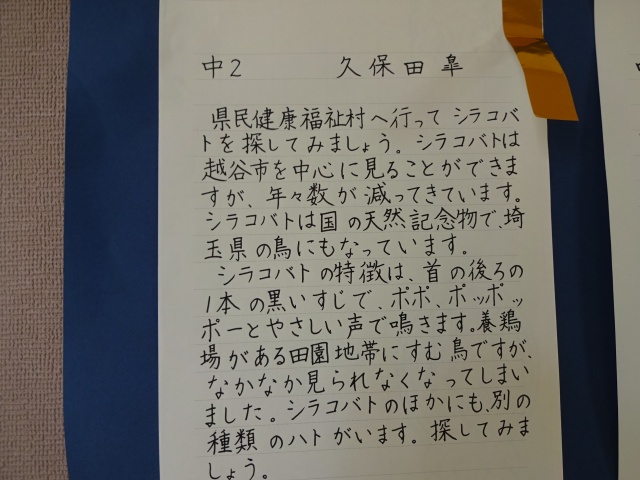 中2 久保田 皐
県民健康福祉村へ行って シラコバ
トを探してみましょう。シラコバトは
越谷市を中心に見ることができま
すが、年々数が減ってきています。
シラコバトは国の天然記念物で、埼
玉県の鳥にもなっています。
シラコバトの特徴は、首の後ろの
1本の黒いすじで、ポポ、ポッポッ
ポーとやさしい声で鳴きます。養鶏
場がある田園地帯にすむ鳥ですが、
なかなか見られなくなってしまい
ました。シラコバトのほかにも、別の
種類のハトがいます。探してみま
しょう。